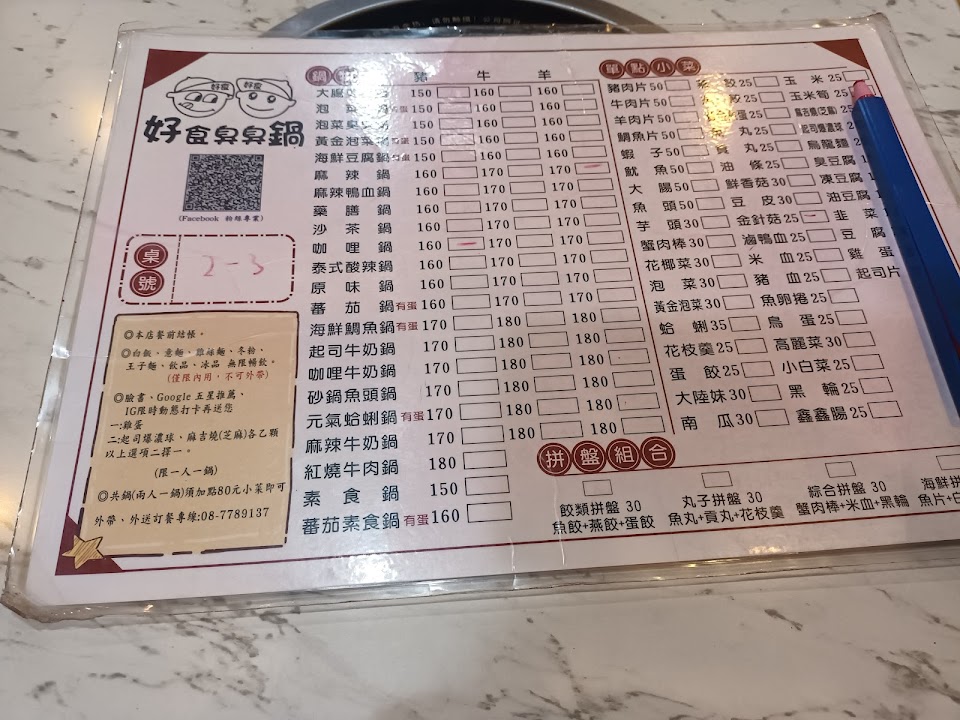 好食臭臭鍋
(Facebook 粉絲專業)
桌號
2-3
◎本店餐前結帳。
◎白飯、意麵、雞絲麵、冬粉、
王子麵、飲品、冰品 無限暢飲。
(僅限內用,不可外帶)
◎臉書、Google 五星推薦、
IG限時動態打卡再送您
一:雞蛋
二:起司爆濃球、麻吉燒(芝麻)各乙顆
以上選項二擇一。
(限一人一鍋)
◎共鍋(兩人一鍋)須加點80元小菜即可
外帶、外送訂餐專線:08-7789137
鍋 豬 牛 羊
大腸 150 160 160
泡菜 有蛋 150 160 160
泡菜臭 150 160 160
黃金泡菜鍋 有蛋 150 160 160
海鮮豆腐鍋 有蛋 150 160 160
麻辣鍋 160 170 170
麻辣鴨血鍋 160 170 170
藥膳鍋 160 170 170
沙茶鍋 160 170 170
咖哩鍋 160 170 170
泰式酸辣鍋 160 170 170
原味鍋 160 170 170
蕃茄鍋 有蛋 160 170 170
海鮮鯛魚鍋 有蛋 170 180 180
起司牛奶鍋 170 180 180
咖哩牛奶鍋 170 180 180
砂鍋魚頭鍋 170 180 180
元氣蛤蜊鍋 有蛋 170 180 180
麻辣牛奶鍋 170 180 180
紅燒牛肉鍋 180
素食鍋 150
蕃茄素食鍋 有蛋 160
單點小菜
豬肉片 50 餃 25 玉米 25
牛肉片 50 餃 25 玉米筍
羊肉片 50 25
鯛魚片 50 丸 25
蝦子 50 貢丸 25 烏龍麵
魷魚 50 油條 25 臭豆腐
大腸 50 鮮香菇 30 凍豆腐
魚頭 50 豆皮 30 油豆腐
芋頭 30 金針菇 25 韭菜
蟹肉棒 30 滷鴨血 25 豆腐
花椰菜 30 米血 25 雞蛋
泡菜 30 豬血 25 起司片
黃金泡菜 30 魚卵捲 25
蛤蜊 35 鳥蛋 25
花枝羹 25 高麗菜 30
蛋餃 25 小白菜 25
大陸妹 30 黑輪 25
南瓜 30 鑫鑫腸 25
拼盤組合
餃類拼盤 30 丸子拼盤 30 綜合拼盤 30 海鮮拼
魚餃+燕餃+蛋餃 魚丸+貢丸+花枝羹 蟹肉棒+米血+黑輪 魚片+